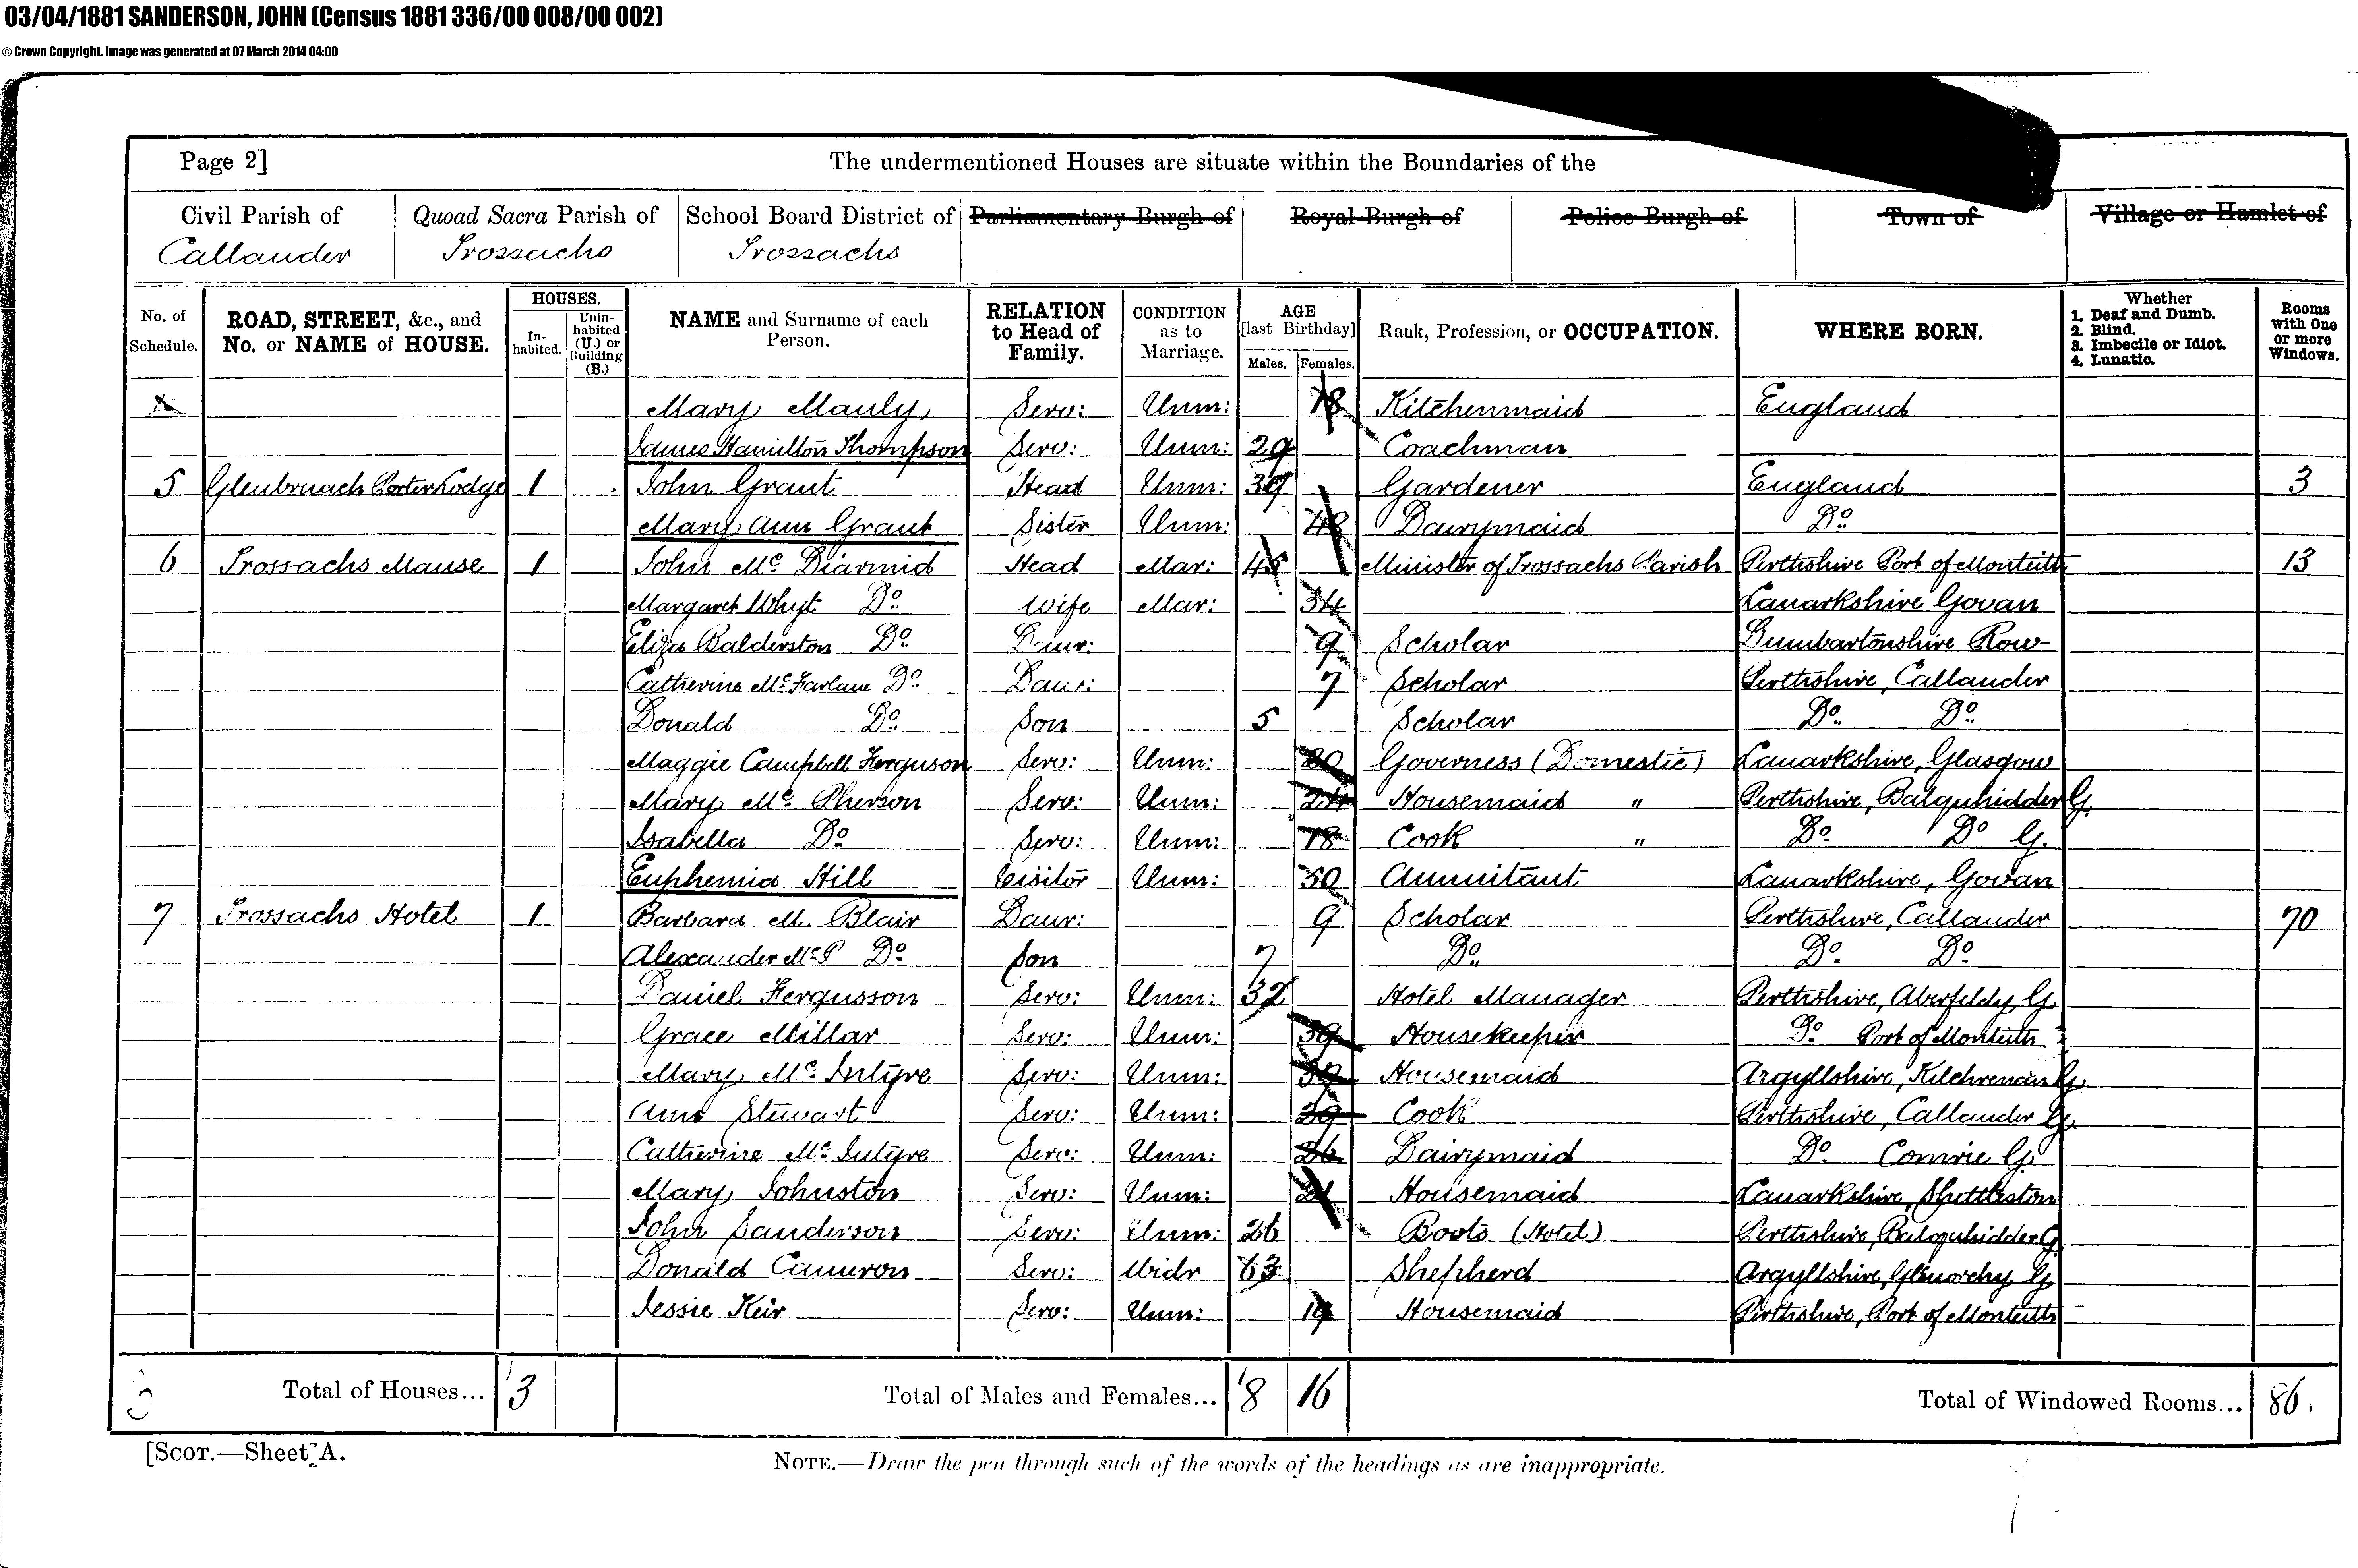 03/04/1881 SANDERSON, JOHN (Census 1881 336/00 008/00 002)
© Crown Copyright. Image was generated at 07 March 2014 04:00
Page 2] The undermentioned Houses are situate within the Boundaries of the
Civil Parish of Quoad Sacra Parish of School Board District of Parliamentary Burgh of Royal Burgh of Police Burgh of Town of Village or Hamlet of
Callander Trossachs Trossachs
No. of Schedule. ROAD, STREET, &c., and No. or NAME of HOUSE. HOUSES. Inhabited. Uninhabited (U.) or Building (B.) NAME and Surname of each Person. RELATION to Head of Family. CONDITION as to Marriage. AGE [last Birthday] Males. Females. Rank, Profession, or OCCUPATION. WHERE BORN. Whether 1. Deaf and Dumb. 2. Blind. 3. Imbecile or Idiot. 4. Lunatic. Rooms with One or more Windows.
Mary Mauly Serv: Unm: 18 Kitchenmaid England
James Hamilton Thompson Serv: Unm: 29 Coachman
5 Glenbruach Porter Lodge 1 John Grant Head Unm: 39 Gardener England 3
Mary Ann Grant Sister Unm: 48 Dairymaid Do.
6 Trossachs Manse 1 John Mc Diarmid Head Mar: 45 Minister of Trossachs Parish Perthshire Port of Monteith 13
Margaret Whyt Do. Wife Mar: 34 Lanarkshire Govan
Eliza Balderston Do. Daur: 9 Scholar Dumbartonshire Row
Catherine Mc Farlane Do. Daur: 7 Scholar Perthshire, Callander
Donald Do. Son 5 Scholar Do. Do.
Maggie Campbell Ferguson Serv: Unm: 20 Governess (Domestic) Lanarkshire, Glasgow
Mary Mc Pherson Serv: Unm: 24 Housemaid " Perthshire, Balquhidder G.
Isabella Do Serv: Unm: 18 Cook " Do. Do G.
Euphemia Hill Visitor Unm: 50 Annuitant Lanarkshire, Govan
7 Trossachs Hotel 1 Barbara M. Blair Daur: 9 Scholar Perthshire, Callander 70
Alexander McP Do Son 7 Do. Do. Do.
Daniel Fergusson Serv: Unm: 32 Hotel Manager Perthshire, Aberfeldy G.
Grace Millar Serv: Unm: 39 Housekeeper Do. Port of Monteith
Mary Mc Intyre Serv: Unm: 39 Housemaid Argyllshire, Kilchrenan G.
Ann Stewart Serv: Unm: 39 Cook Perthshire, Callander G.
Catherine Mc Intyre Serv: Unm: 26 Dairymaid Do. Comrie G.
Mary Johnston Serv: Unm: 21 Housemaid Lanarkshire, Shettleston
John Sanderson Serv: Unm: 26 Boots (Hotel) Perthshire, Balquhidder G.
Donald Cameron Serv: Widr 63 Shepherd Argyllshire, Glenorchy G.
Jessie Keir Serv: Unm: 19 Housemaid Perthshire, Port of Monteith
Total of Houses... 3 Total of Males and Females... 8 16 Total of Windowed Rooms... 86
[SCOT.—Sheet A.
NOTE.—Draw the pen through such of the words of the headings as are inappropriate.